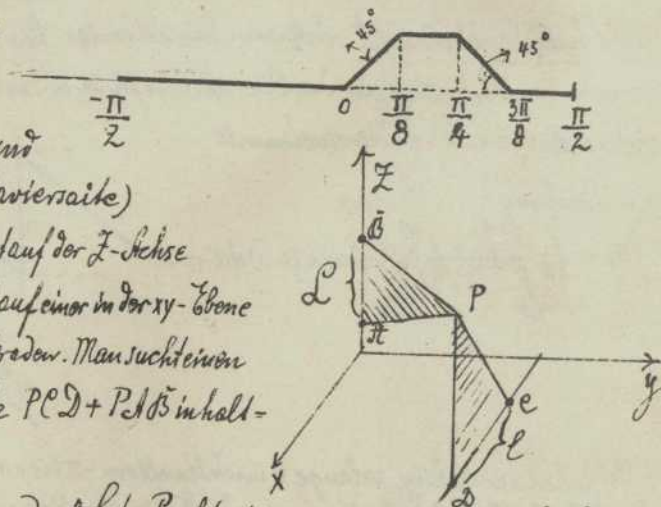 45° 45°
-π/2 0 π/8 π/4 3π/8 π/2
und
aviersaite)
auf der Z-Achse
auf einer in der xy-Ebene
raden. Man sucht einen
PCD + PAB inhalt=
Z
B
L
A
P
y
C
l
X
D